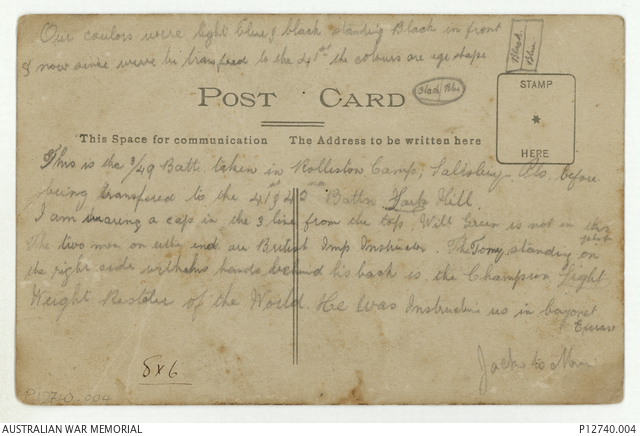 Our coulors were light blue & black standing Black in front
& now since were bi transfered to the 41st the colours are egg shape
Black
Blue
Black Blue
POST CARD
STAMP
HERE
This Space for communication The Address to be written here
This is the 3/49 Batt. taken in Rolliston Camp, Salisbury before
being transfered to the 41st & 42 Batton Hill.
I am wearing a cap in the 3 line from the top. Will Green is not in this
The two men on either end are British Imp Instructor. The Tomy standing on
the right side with his hands behind his back is the Champion Light
Weight Restler of the World. He was Instructin us in bayonet
Jack to
8x6
P12740.004
AUSTRALIAN WAR MEMORIAL
P12740.004